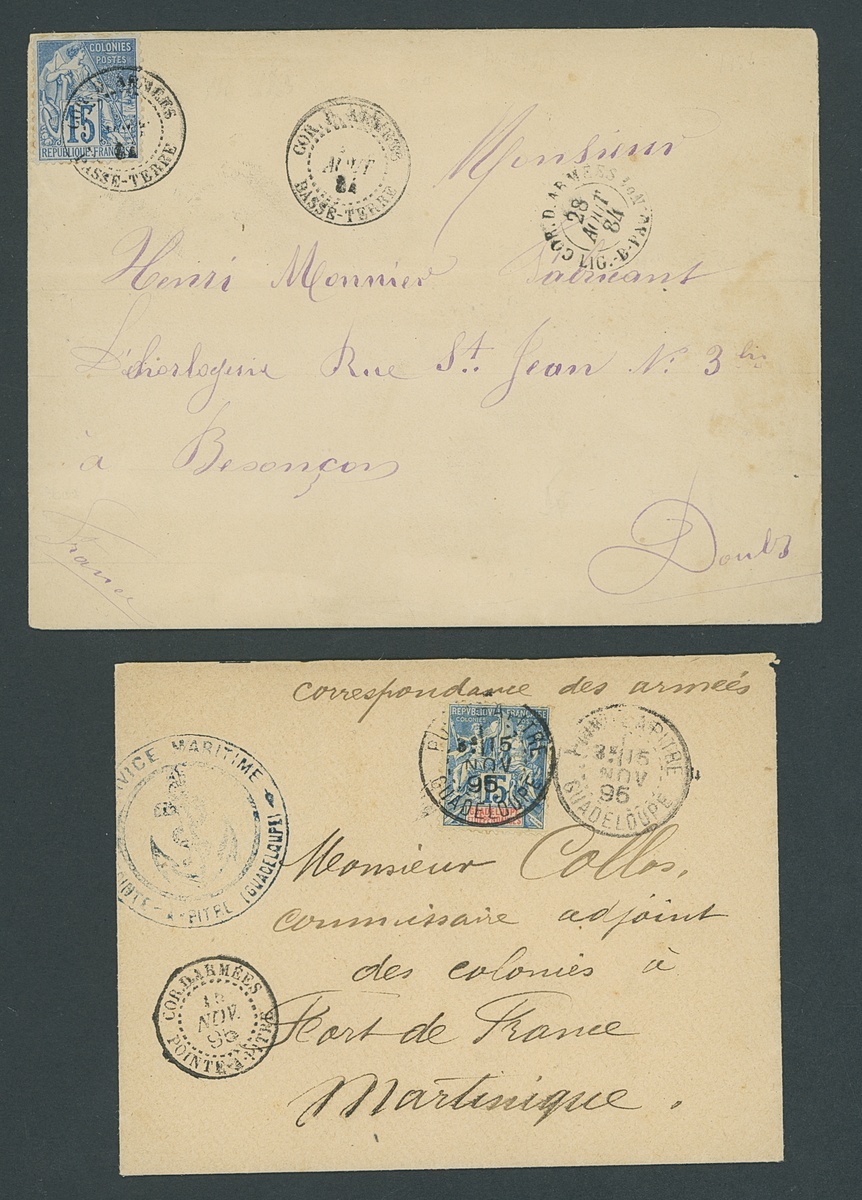 COLONIES
POSTES
15
REPUBLIQUE-FRANC
COR. D. ARMÉES
84
BASSE-TERRE
COR. D. ARMÉES
AOUT
84
BASSE-TERRE
Monsieur
COR. D. ARMÉES
28
AOUT
84
LIG.-B-PAQ
Henri Monnier Fabricant
D'horlogerie Rue St. Jean No. 3 bis
à Besançon
France
Doubs
correspondance des armées
REPUBLIQUE FRANÇAISE
COLONIES POSTES
15
POINTE-A-PITRE
3E 15
NOV
95
GUADELOUPE
POINTE-A-PITRE
3E 15
NOV
95
GUADELOUPE
SERVICE MARITIME
POINTE-A-PITRE (GUADELOUPE)
Monsieur Collos,
commissaire adjoint
des colonies à
Fort de France
Martinique.
COR. D. ARMÉES
NOV.
95
POINTE-A-PITRE